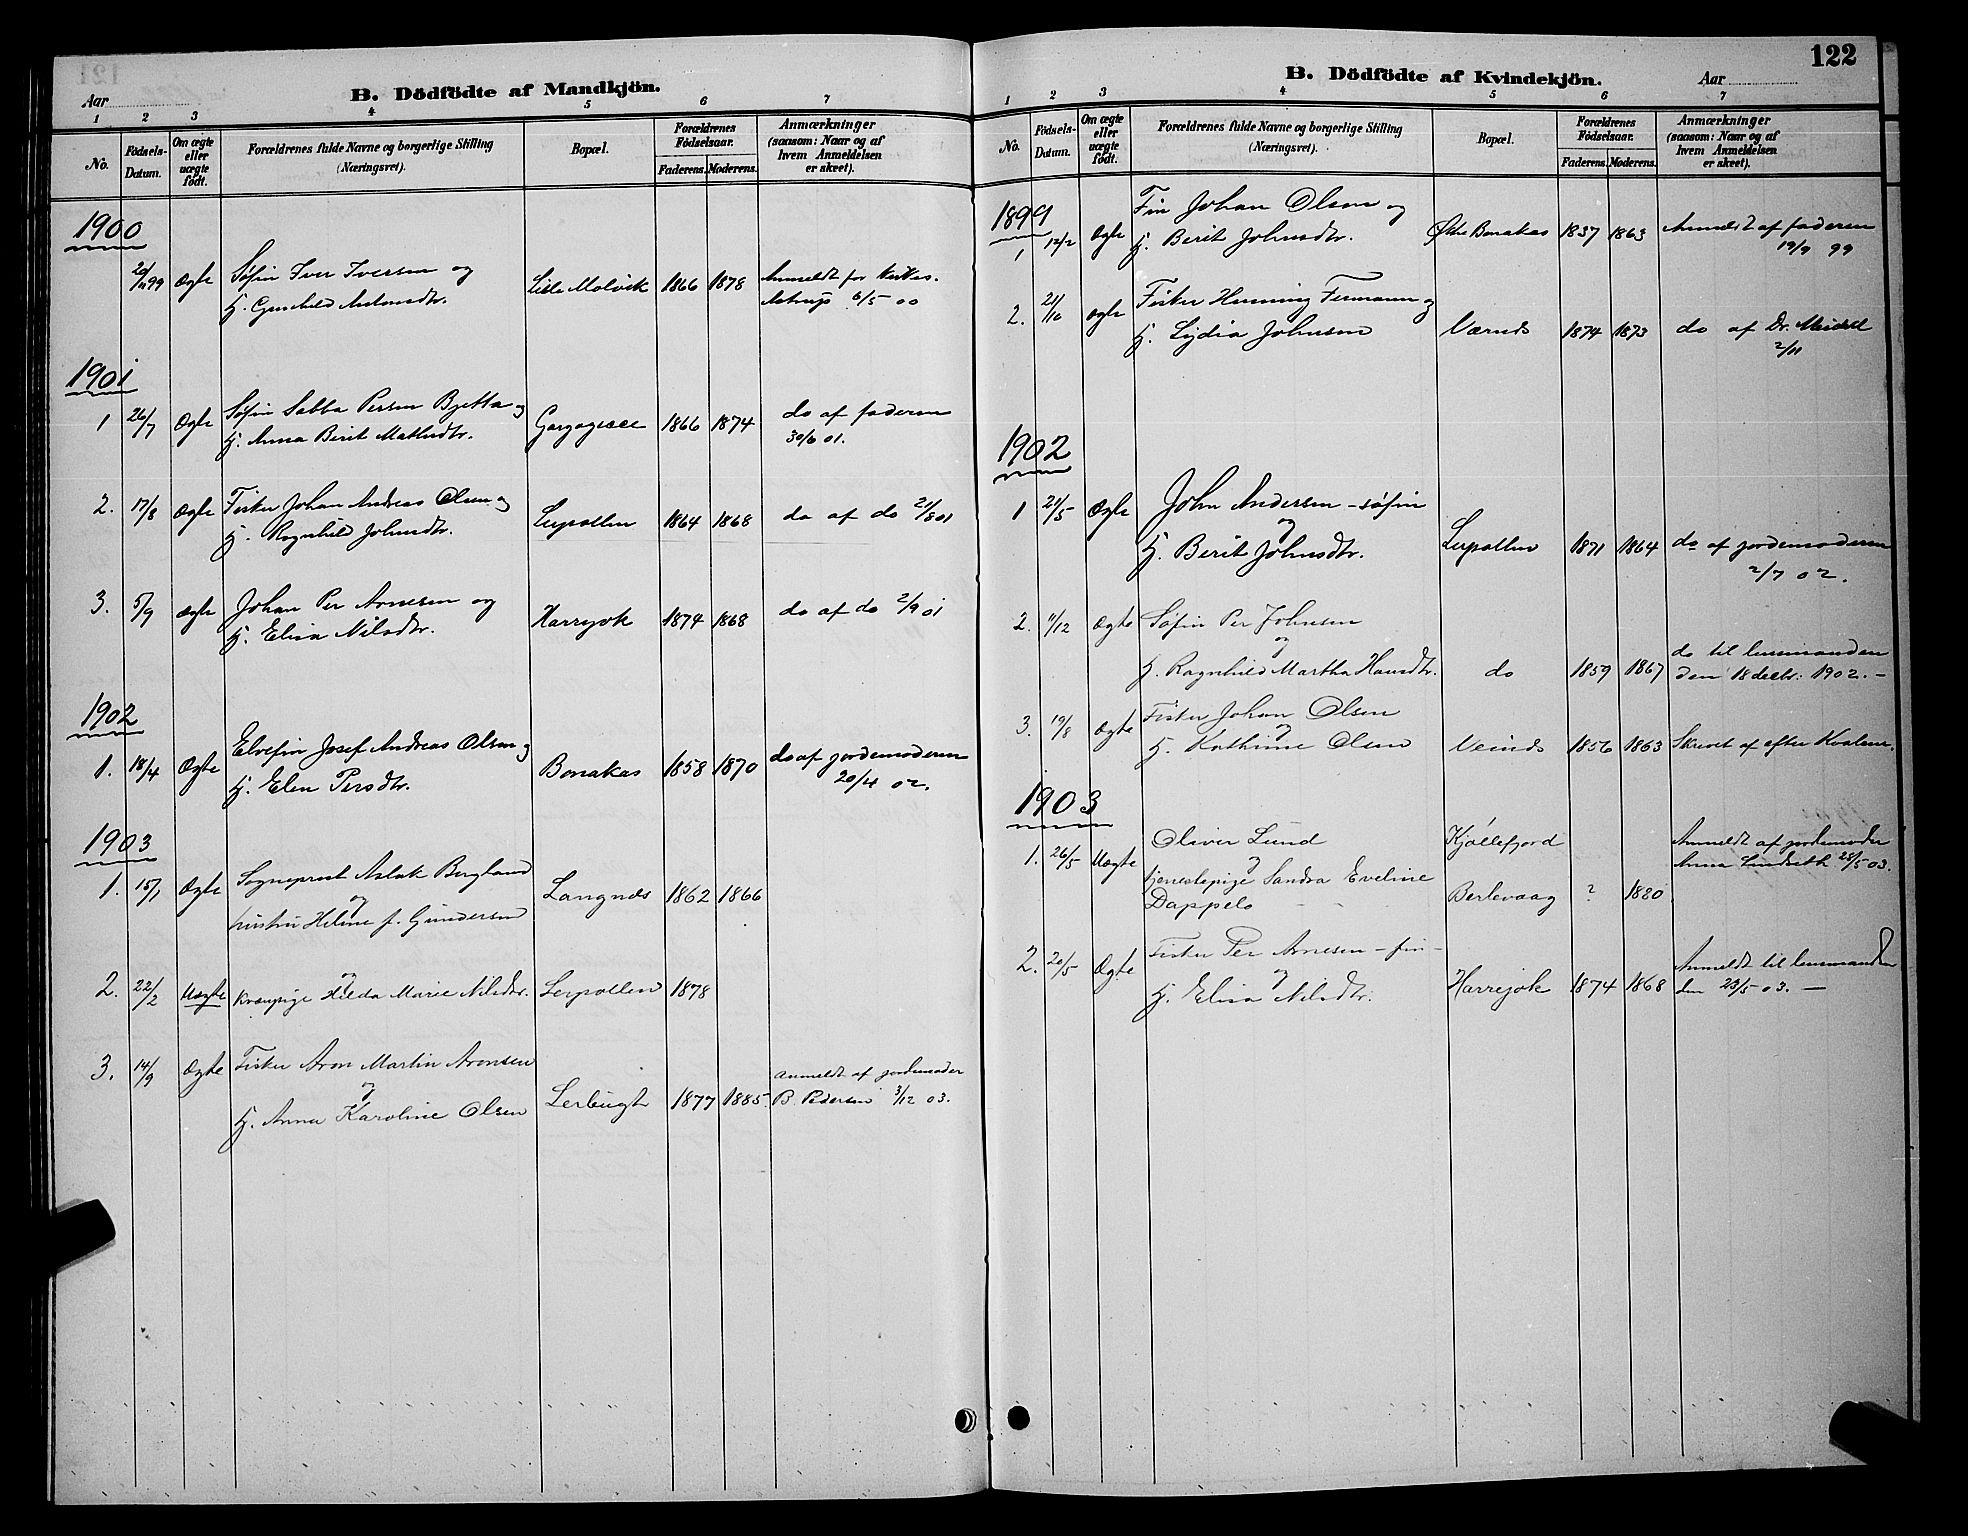 122
B. Dödfödte af Mandkjön.
Aar
1 2 3 4 5 6 7
No.
Födsels-
Datum.
Om ægte
eller
uægte
født.
Forældrenes fulde Navne og borgerlige Stilling
(Næringsvei).
Bopæl.
Forældrenes
Födselsaar.
Faderens. Moderens.
Anmærkninger
(saasom: Naar og af
hvem Anmeldelsen
er skeet).
1900
Ægte Søfin Iver Iversen og
hj. Gunhild Antonsdtr.
Lille Molvik 1866 1878
Anmeldt for
6/5 00
1901
1 26/7 Ægte Søfin Sabba Persen Bjetta og
hj. Anna Berit Mathisdtr.
1866 1874 do af faderen
30/6 01.
2. 17/8 Ægte Fisker Johan Andreas Olsen og
hj. Ragnhild Johnsdtr.
Leipollen 1864 1868 do af do 21/8 01
3. 5/9 Ægte Johan Per Arnesen og
hj. Elisa Nilsdtr.
Harryok 1874 1868 do af do 2/9 01
1902
1. 18/4 Ægte Elvefin Josef Andreas Olsen og
hj. Elen Persdtr.
Bonakas 1858 1870 do af jordemoderen
20/4 02.
1903
1. 15/1 Ægte Sogneprest Aslak Bergland
og
hustru Helene f. Gundersen
Langnes 1862 1866
2. 22/2 Uægte Kvænpige Hilda Marie Nilsdtr. Leipollen 1878
3. 14/9 Ægte Fisker Aron Martin Aronsen
og
hj. Anna Karoline Olsen
Lerbugt 1877 1885
Anmeldt af jordemoder
B. Pedersen 3/12 03.
B. Dödfödte af Kvindekjön.
Aar
1 2 3 4 5 6 7
No.
Födsels-
Datum.
Om ægte
eller
uægte
født.
Forældrenes fulde Navne og borgerlige Stilling
(Næringsvei).
Bopæl.
Forældrenes
Födselsaar.
Faderens. Moderens.
Anmærkninger
(saasom: Naar og af
hvem Anmeldelsen
er skeet).
1899
1 12/2 Ægte Fin Johan Olsen og
hj. Berit Johnsdtr.
Østre Bonakas 1837 1863 Anmeldt af faderen
19/9 99
2. 21/10 Ægte Fisker Henning Fermann og
hj. Lydia Johnsen
Værnes 1874 1873 do af Dr.
2/11
1902
1 21/5 Ægte John Andersen - søfin
og
hj. Berit Johnsdtr.
Leipollen 1871 1864 do af jordemoderen
2/7 02.
2. 11/12 Ægte Søfin Per Johnsen
og
hj. Ragnhild Martha Hansdtr.
do 1859 1867
do til lensmanden
den 18 decbr. 1902. -
3. 19/8 Ægte Fisker Johan Olsen
og
hj. Kathrine Olsen
1856 1863 Skrevet af efter
1903
1. 26/5 Uægte Oliver Lund
og
tjenestepige Sandra Eveline
Dappelo
Kjøllefjord
Berlevaag ? 1880
Anmeldt af jordemoder
Anna Lindseth 28/5 03.
2. 20/5 Ægte Fisker Per Arnesen - fin -
og
hj. Elisa Nilsdtr.
Harrejok 1874 1868
Anmeldt til lensmanden
den 23/5 03. -